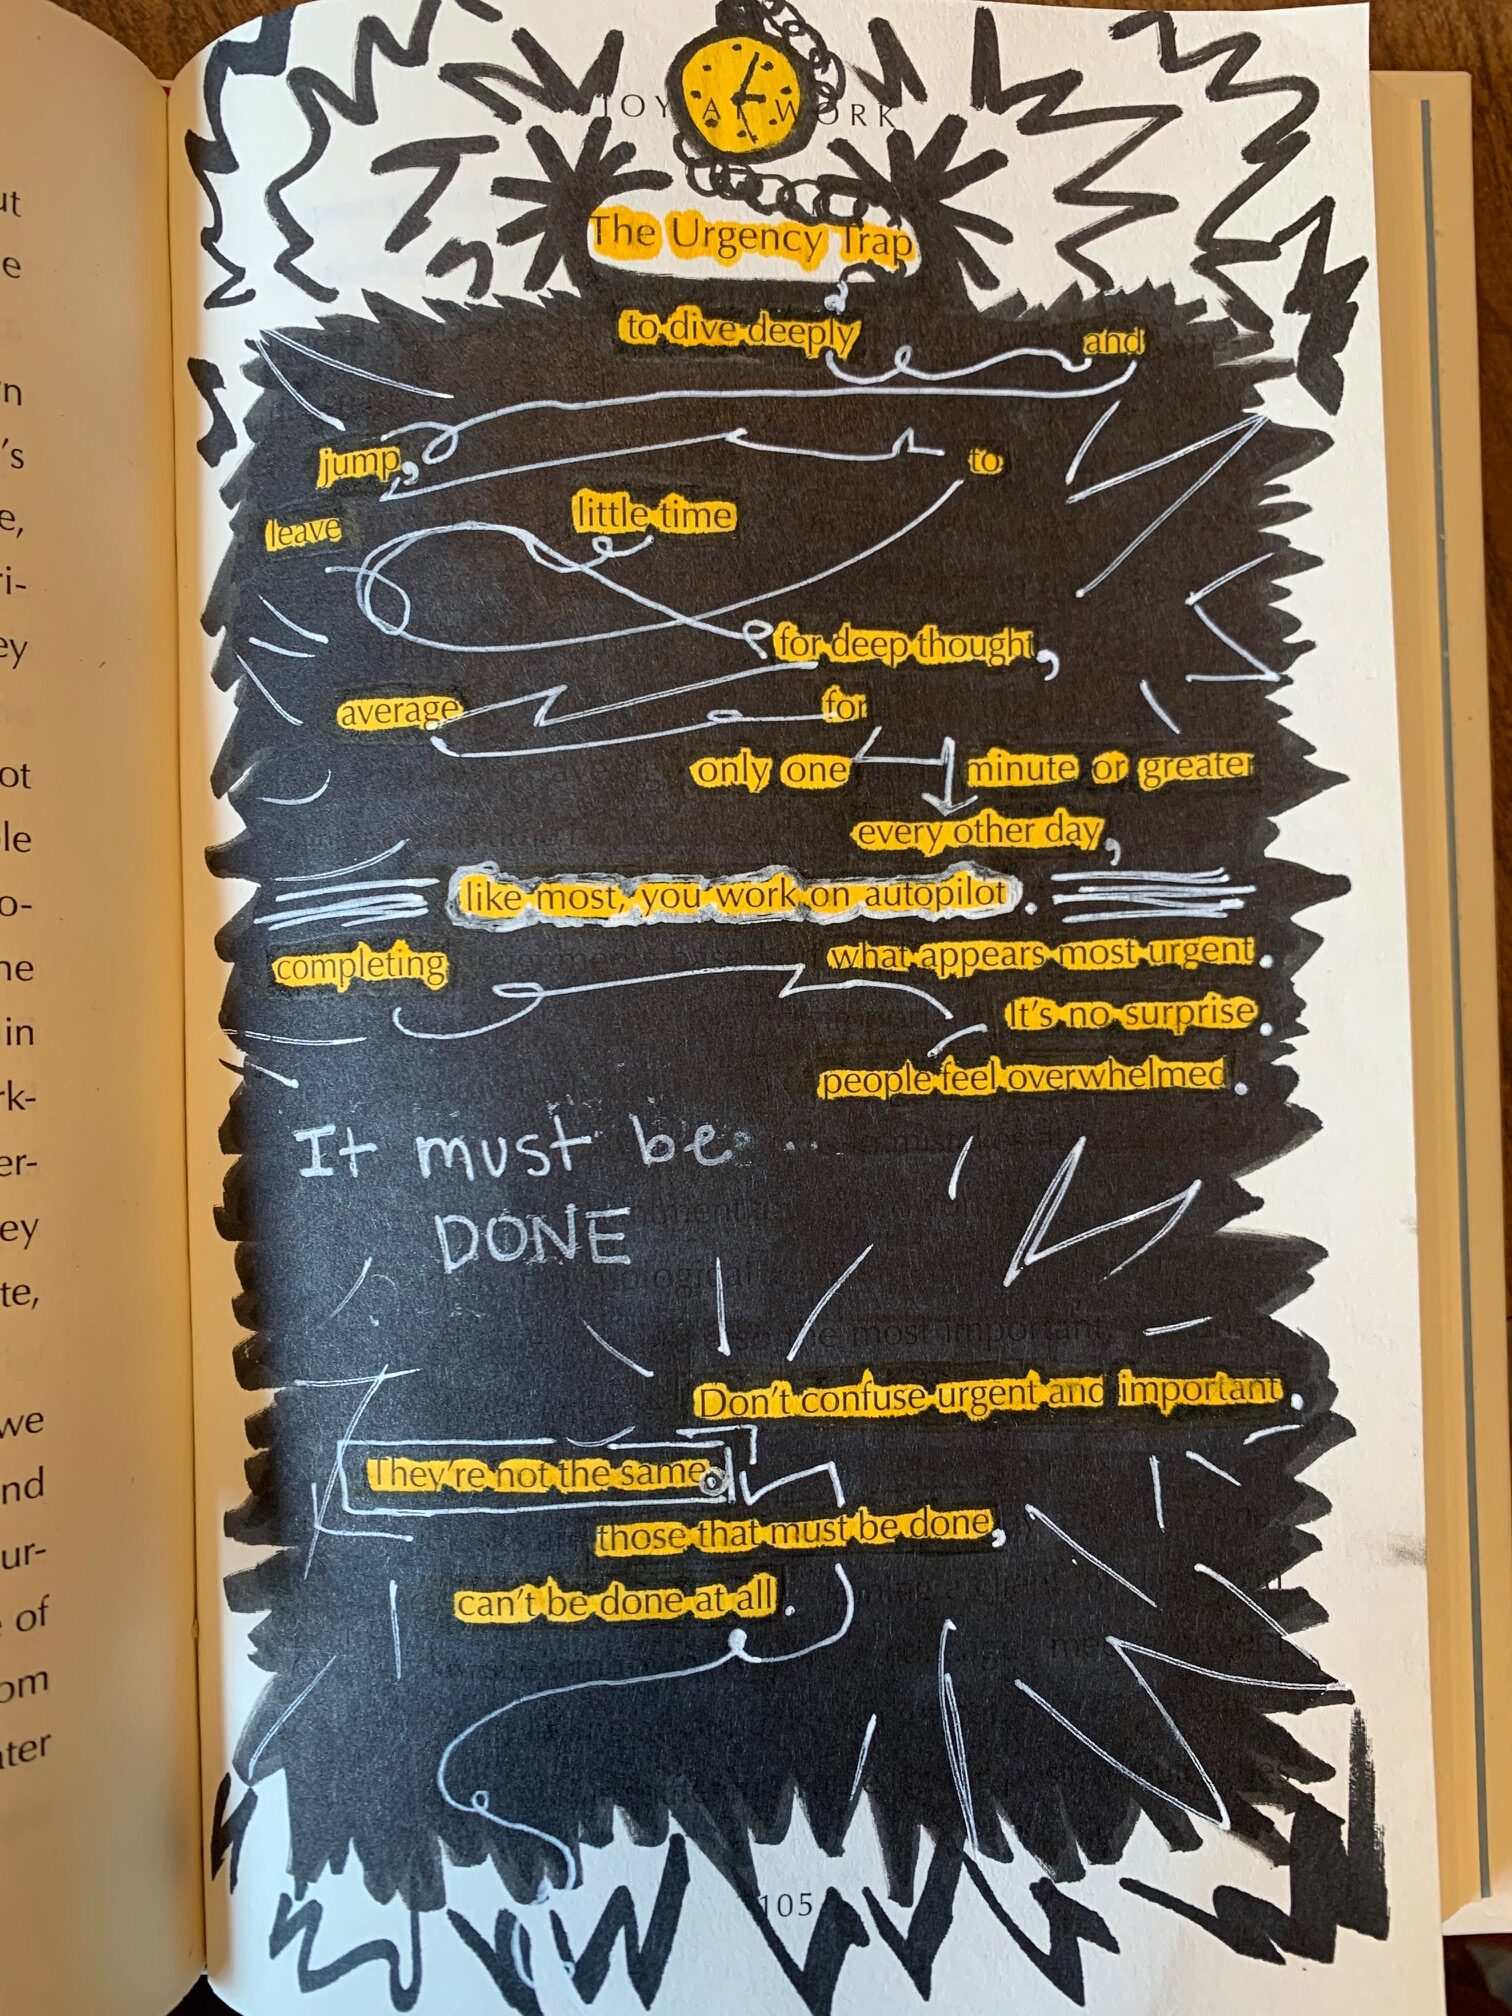 JOY AT WORK
The Urgency Trap
to dive deeply and
jump, to
leave little time
for deep thought,
average for
only one minute or greater
every other day,
like most, you work on autopilot.
completing what appears most urgent.
It's no surprise.
people feel overwhelmed.
It must be...
mistakes
DONE
most important,
Don't confuse urgent and important.
They're not the same.
those that must be done,
can't be done at all.
105
ut
e
n
's
e,
ri-
ey
ot
le
o-
ne
in
rk-
er-
ey
te,
we
nd
ur-
of
om
ater